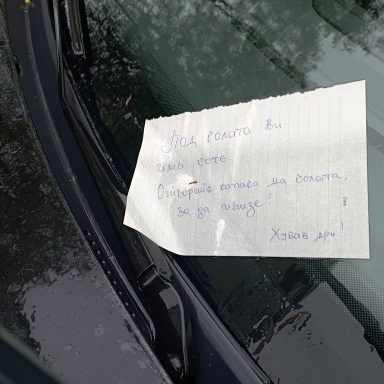 Под колата Ви
има коте.
Отворете капака на колата,
за да излезе!
Хубав ден!